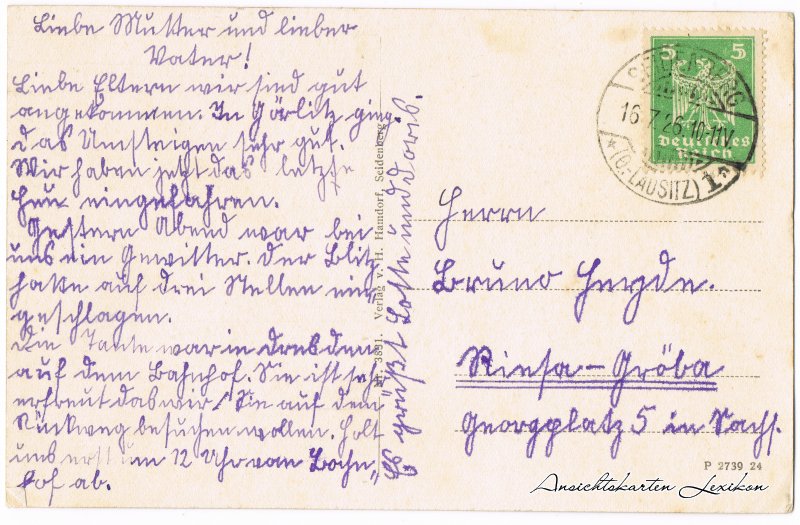 Liebe Mutter und lieber
Vater!
Liebe Eltern wir sind gut
angekommen. In Görlitz ging
das Umsteigen sehr gut.
Wir haben jetzt das letzte
Heu eingefahren.
Gestern Abend war bei
uns ein Gewitter. Der Blitz
hatte auf drei Stellen ein
geschlagen.
Die Tante war in Dresden
auf dem Bahnhof. Sie ist sehr
erfreut das wir Sie auf dem
Rückweg besuchen wollen. Holt
uns erst um 12 Uhr vom Bahn„
hof ab.
Es grüßt Lotte und Doris.
Nr. 3891. Verlag v. H. Hamdorf, Seidenberg
5 5
Deutsches
Reich
16.7.26.10-11V
*(O.LAUSITZ)1*
Herrn
Bruno Heyde.
Riesa-Gröba
Georgplatz 5 in Sachs.
P 2739 24
Ansichtskarten Lexikon